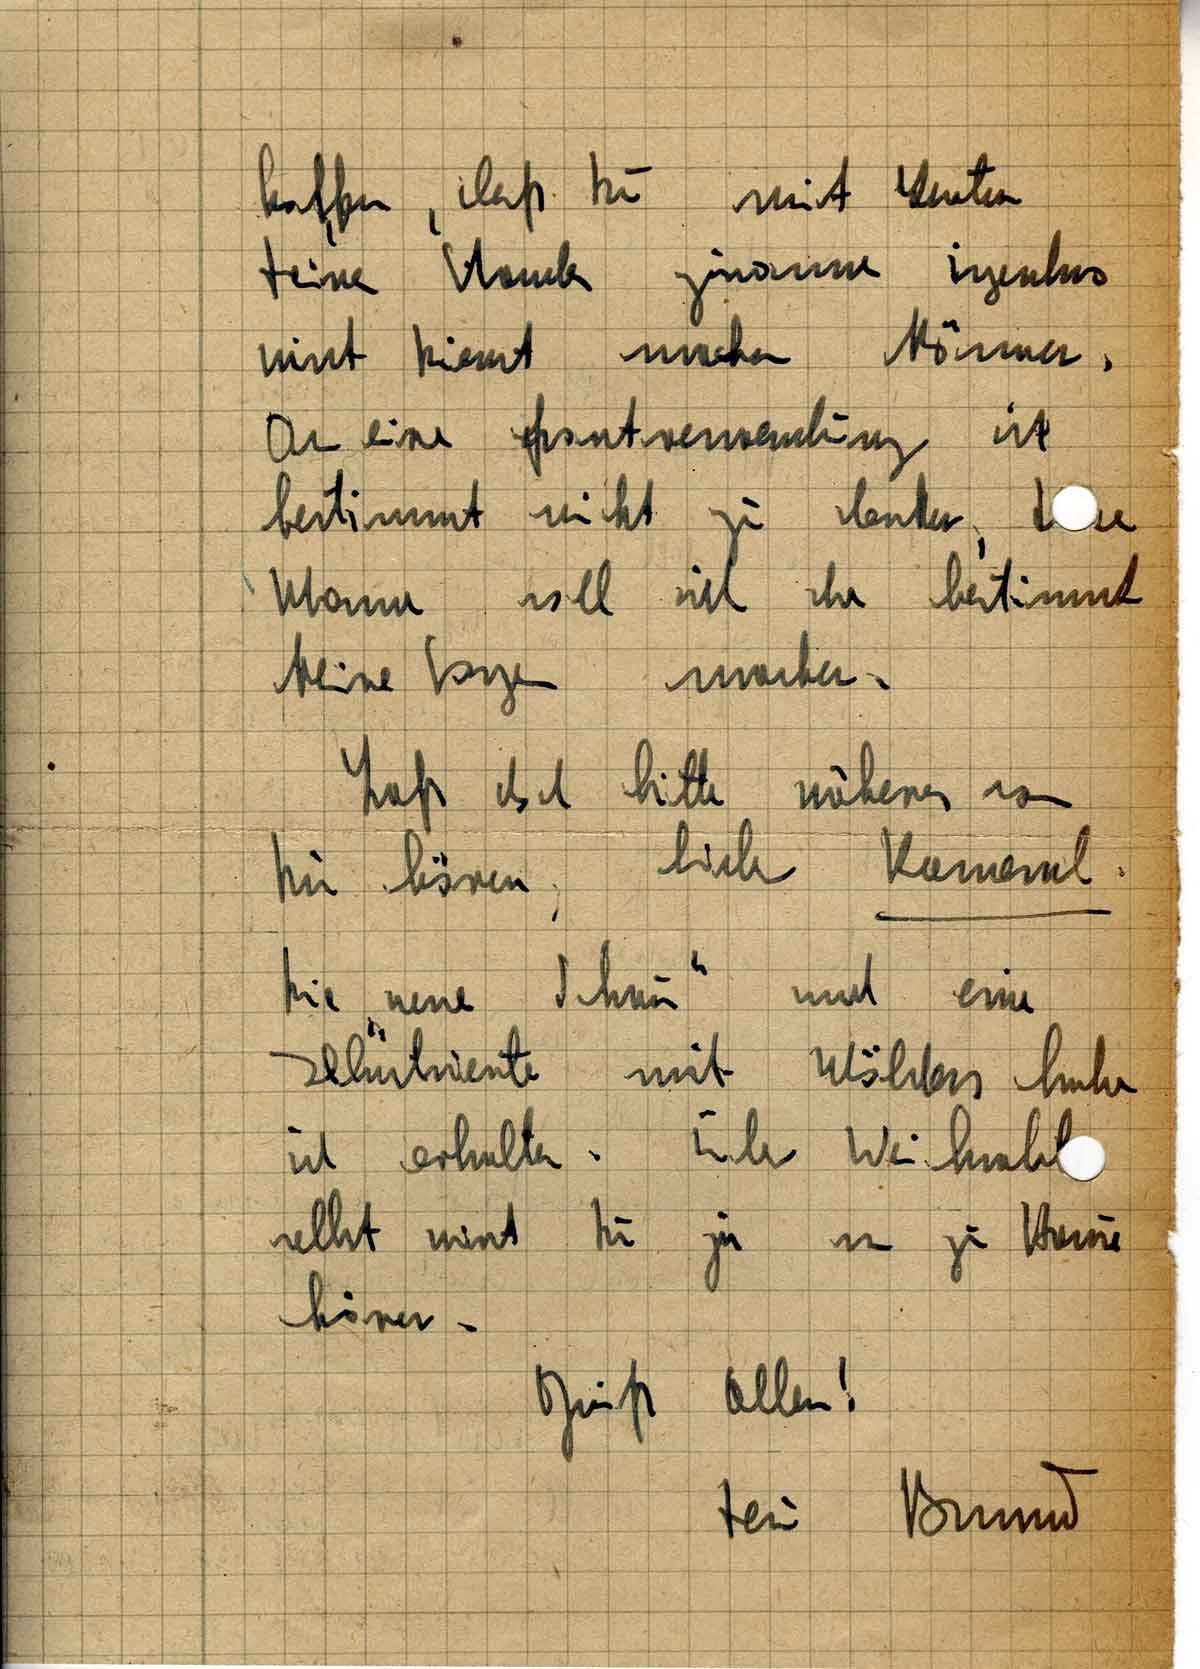 hoffen, daß Du mit Leuten
Deine Stunde genauso irgendwo
wirst Dienst machen können.
An eine Frontverwendung ist
bestimmt nicht zu denken, Deine
Mama soll sich da bestimmt
keine Sorgen machen.
Laß doch bitte näheres von
Dir hören, lieber Kamerad.
Die „neue Schau“ und eine
mit Mölders habe
ich erhalten. Über Weihnacht
selbst wirst Du ja von zu Hause
hören.
Grüß Allen!
Dein